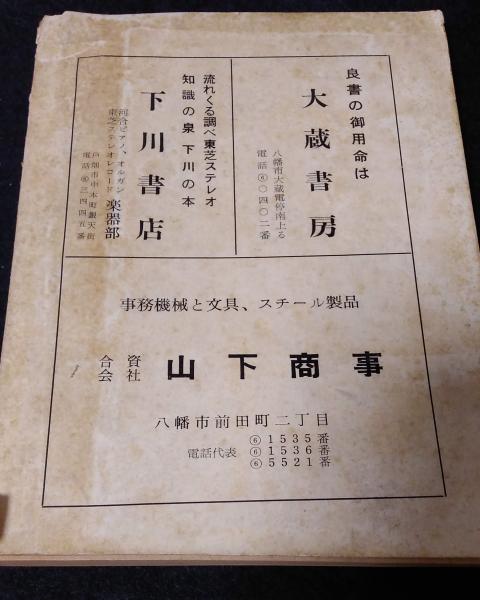 良書の御用命は
大蔵書房
八幡市大蔵電停南上る
電話⑥〇四〇二番
流れくる調べ東芝ステレオ
知識の泉 下川の本
下川書店
河合ピアノ、オルガン
東芝ステレオレコード
楽器部
戸畑市中本町銀天街
電話⑧三四四五番
事務機械と文具、スチール製品
合資会社 山下商事
八幡市前田町二丁目
電話代表
⑥1535番
⑥1536番
⑥5521番